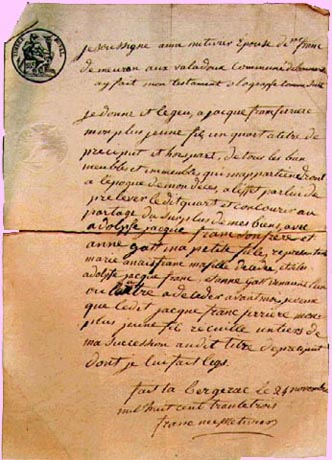 TIMBRE ROYAL
je soussigné anna metivier Epouse de
de meuron aux valadoux Commune de
ay fait mon testament olographe comme suit
je donne et legue, a jacque franc pierre
mon plus jeune fils un quart a titre de
preciput et hors part, de tous les biens
meubles et immeubles qui m'appartiendront
a l'epoque de mon deces, a l'effet par lui de
prelever le dit quart et concourir au
partage du surplus de mes biens, avec
adolphe jacque franc son frere et
anne gast ma petite fille, representant
marie anais franc ma fille decedée, et si les
adolphe jacque franc, anne Gast venaient l'un
ou l'autre a deceder avant moi je veux
que le dit jacque franc pierre mon
plus jeune fils recueille un tiers de
ma succession au dit titre de preciput
dont je lui fais legs.
fait la Bergerac le 24 novembre
mil huit cent trente trois
franc née metivier